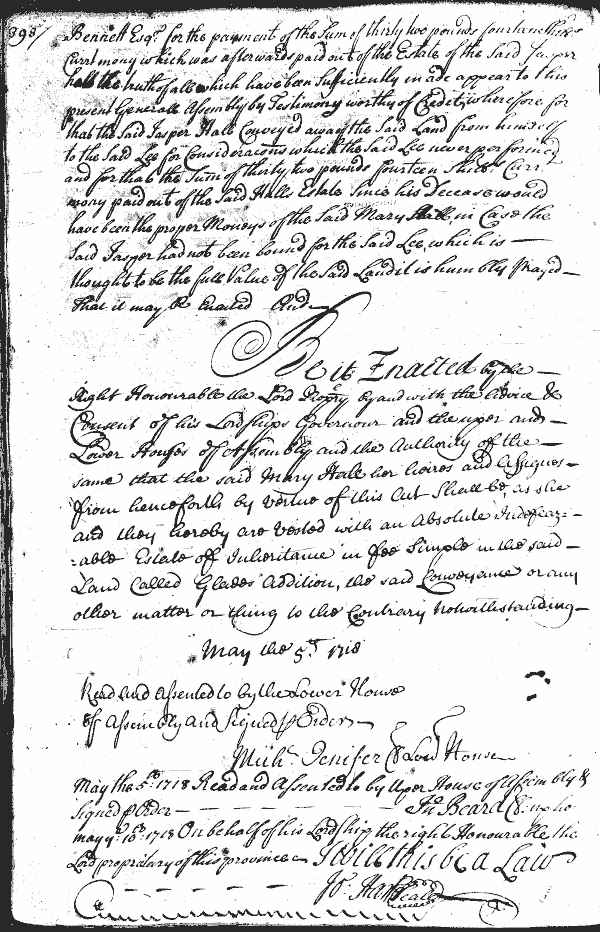 398/
Bennett Esqr. for the payment of the Sum of thirty two pounds fourteen Shills.
Currt mony which was afterwards paid out of the Estate of the Said Jasper
Hall the truth of all which have been Sufficiently made appear to this
present Generall Assembly by Testimony worthy of Credit, wherefore for
that the Said Jasper Hall Conveyed away the Said Land from himself
to the Said Lee for Consideracons which the Said Lee never performed
and for that the Sum of thirty two pounds fourteen Shills. Curr.
mony paid out of the Said Halls Estate Since his Decease would
have been the proper Moneys of the Said Mary Hall, in Case the
Said Jasper had not been bound for the Said Lee, which is —
thought to be the full Value of the Said Land it is humbly Prayed —
that it may be Enacted And —
Be it Enacted by the —
Right Honourable the Lord Propry by and with the Advice &
Consent of his Lordships Governour and the uper and —
Lower Houses of Assembly and the Authority of the —
same that the said Mary Hall her heires and Assignes —
from henceforth by vertue of this Act Shall be, as she
and they hereby are Vested with an Absolute Indefeaz=
=able Estate off Inheritance in fee Simple in the said —
Land Called Glades Addition, the said Conveyance or any
other matter or thing to the Contrary notwithstanding —
May the 5th 1718
Read and Assented to by the Lower House
off Assembly and Signed p Order —
Mich. Jenifer Cl Low House
May the 5th. 1718 Read and Assented to by Uper House of Assembly &
Signed p Order — Jno Beard Cl up ho
may ye. 10th. 1718 On behalf of his Lordship the right Honourable the
Lord propriatary of this province — I Will this be a Law
Jo. Hart Seale